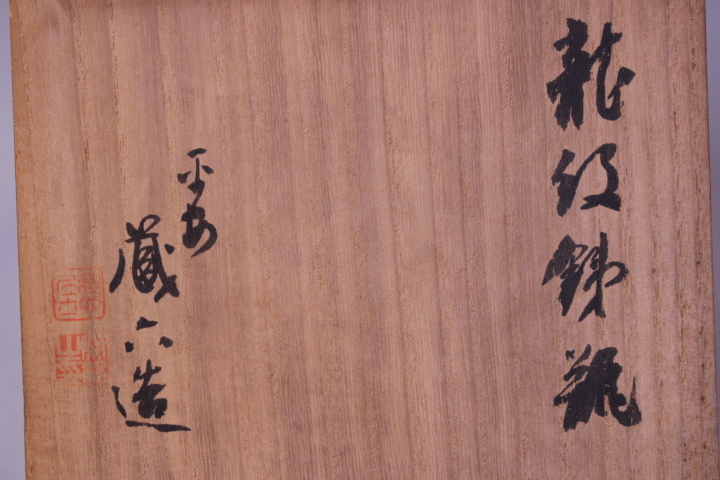 龍紋銕瓶
平安
蔵六造